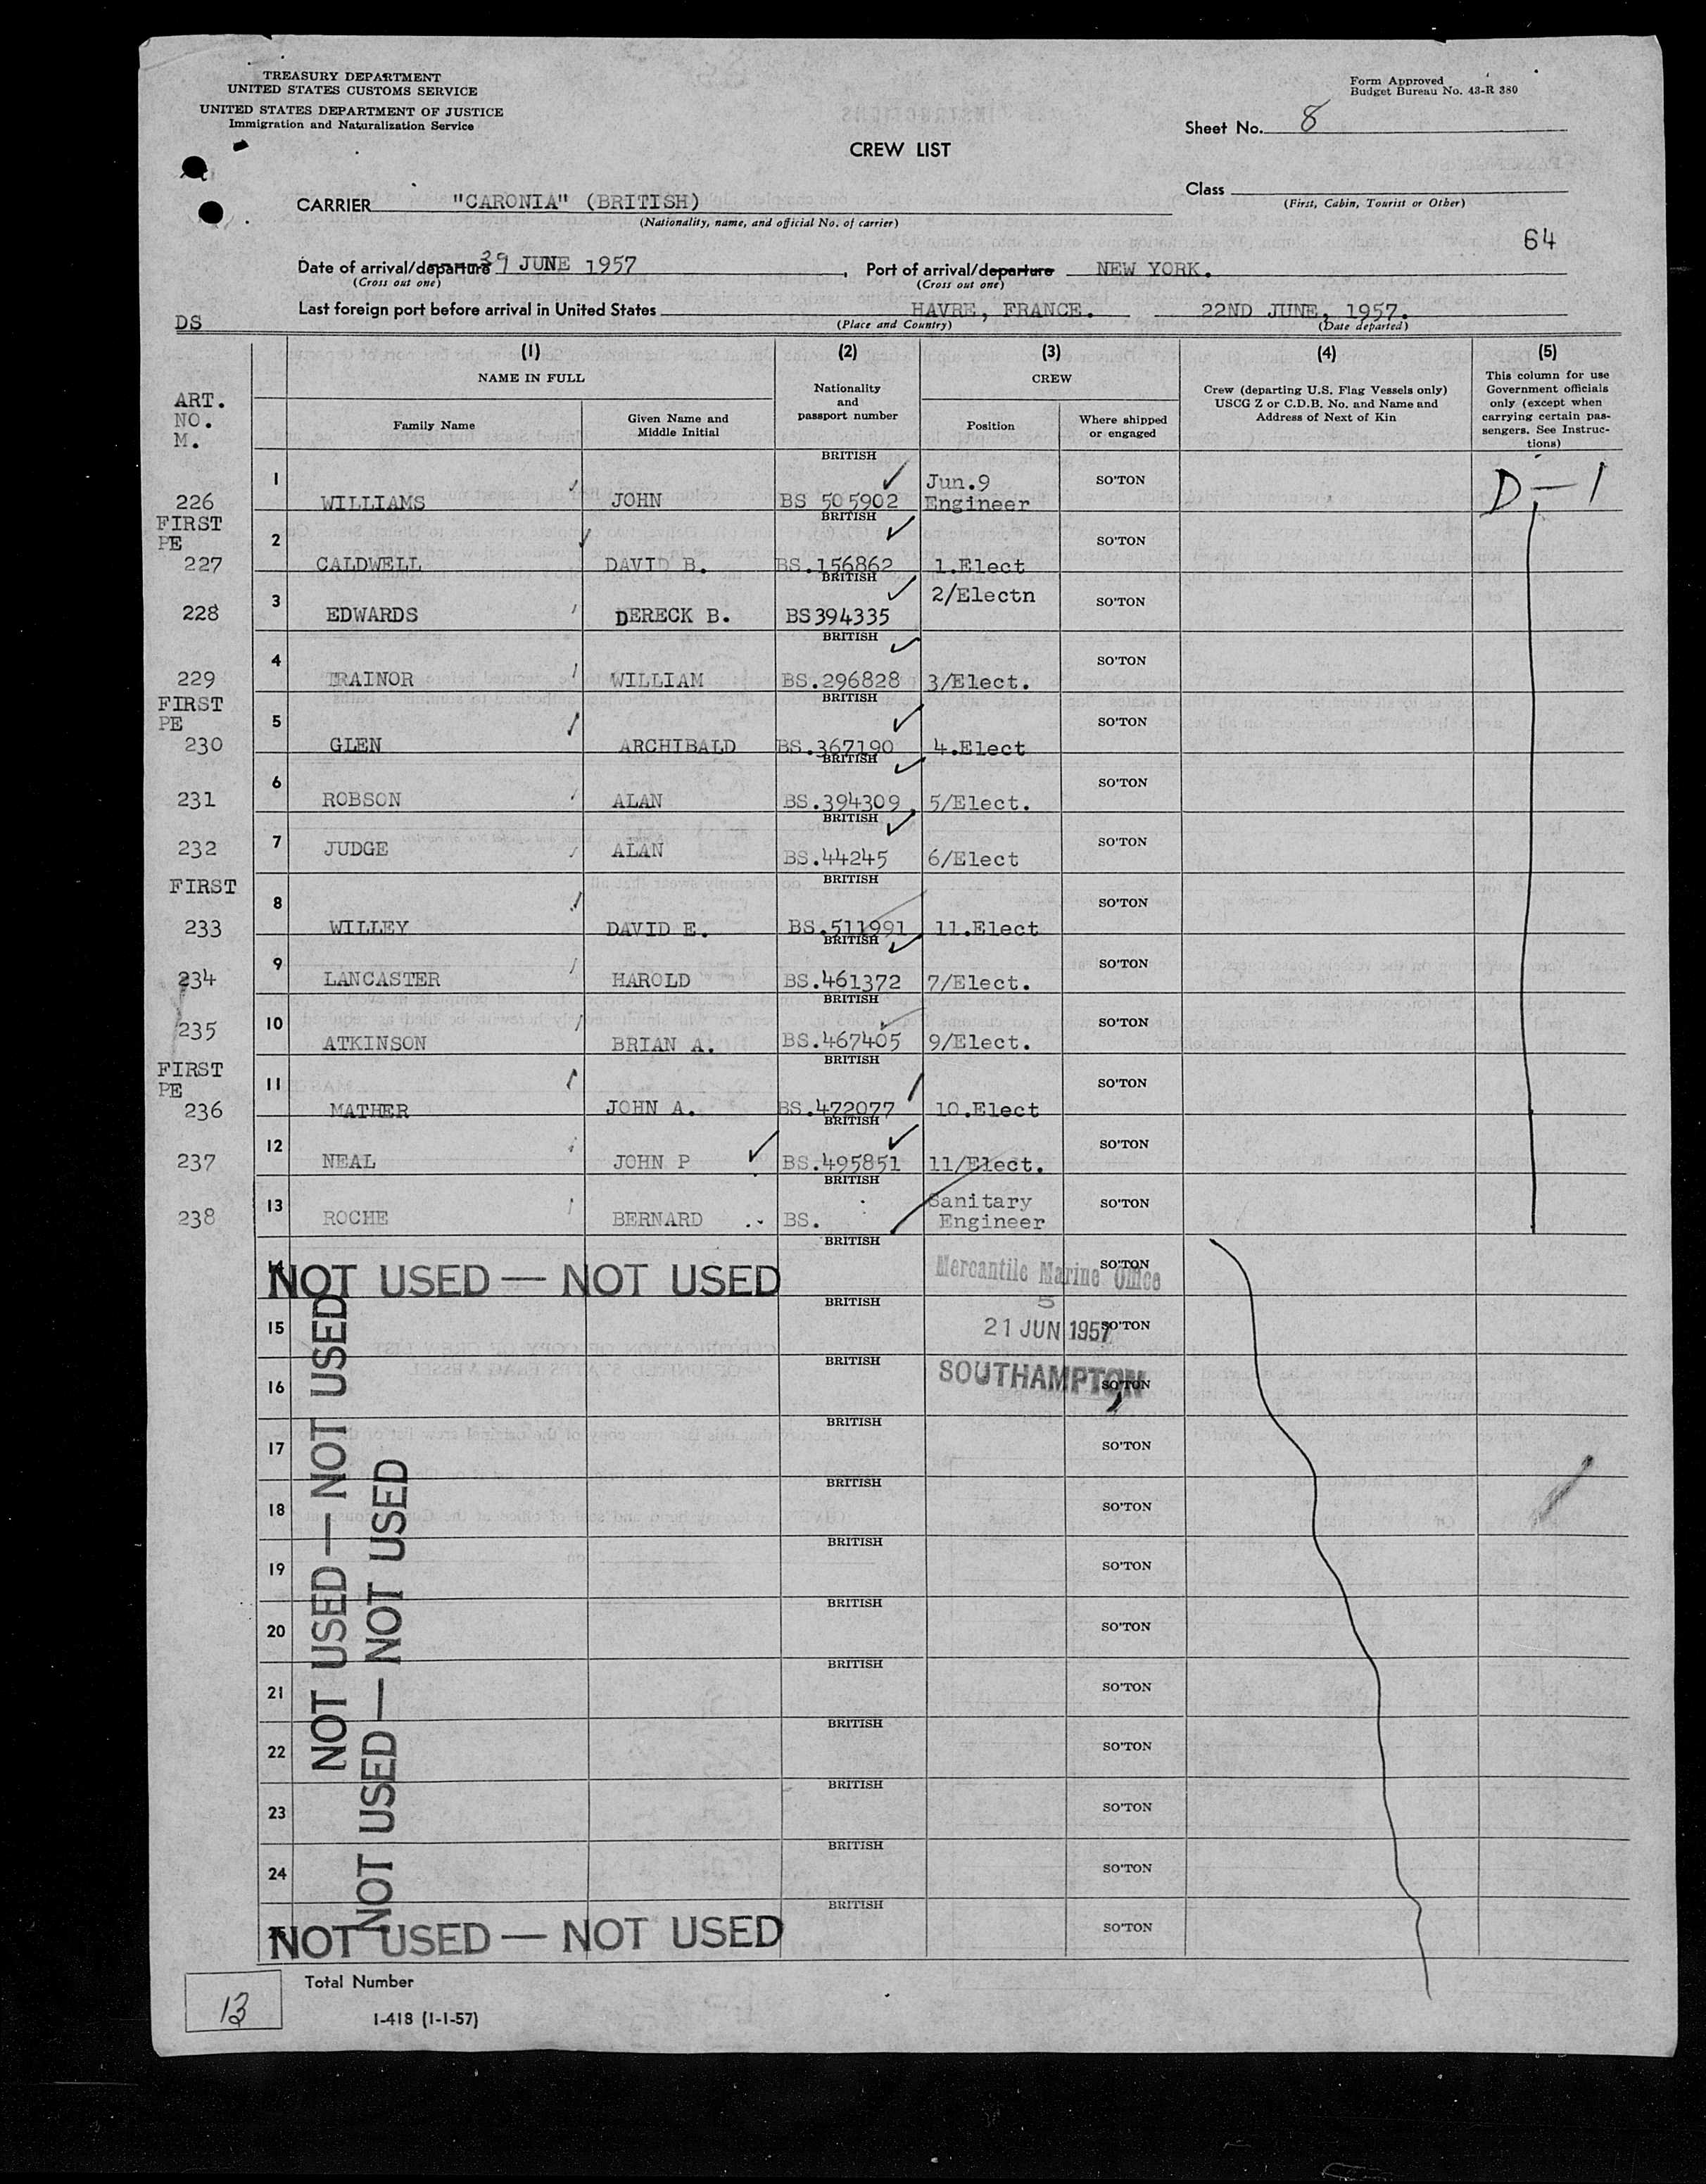 TREASURY DEPARTMENT
UNITED STATES CUSTOMS SERVICE
UNITED STATES DEPARTMENT OF JUSTICE
Immigration and Naturalization Service
Form Approved
Budget Bureau No. 43-R 380
Sheet No. 8
CREW LIST
Class
(First, Cabin, Tourist or Other)
CARRIER "CARONIA" (BRITISH)
(Nationality, name, and official No. of carrier)
64
Date of arrival/departure JUNE 1957, Port of arrival/departure NEW YORK.
(Cross out one) (Cross out one)
Last foreign port before arrival in United States HAVRE, FRANCE. 22ND JUNE, 1957.
(Place and Country) (Date departed)
DS
ART.
NO.
M.
(1) (2) (3) (4) (5)
NAME IN FULL
Family Name
Given Name and
Middle Initial
Nationality
and
passport number
CREW
Position
Where shipped
or engaged
Crew (departing U.S. Flag Vessels only)
USCG Z or C.D.B. No. and Name and
Address of Next of Kin
This column for use
Government officials
only (except when
carrying certain pas-
sengers. See Instruc-
tions)
BRITISH
226 1 WILLIAMS JOHN BS 505902 Jun.9 Engineer SO'TON D-1
FIRST
PE
BRITISH
227 2 CALDWELL DAVID B. BS.156862 1.Elect SO'TON
BRITISH
228 3 EDWARDS DERECK B. BS394335 2/Electn SO'TON
BRITISH
229 4 TRAINOR WILLIAM BS.296828 3/Elect. SO'TON
FIRST
PE
BRITISH
230 5 GLEN ARCHIBALD BS.367190 4.Elect SO'TON
BRITISH
231 6 ROBSON ALAN BS.394309 5/Elect. SO'TON
BRITISH
232 7 JUDGE ALAN BS.44245 6/Elect SO'TON
FIRST
BRITISH
233 8 WILLEY DAVID E. BS.511991 11.Elect SO'TON
BRITISH
234 9 LANCASTER HAROLD BS.461372 7/Elect. SO'TON
BRITISH
235 10 ATKINSON BRIAN A. BS.467405 9/Elect. SO'TON
FIRST
PE
BRITISH
236 11 MATHER JOHN A. BS.472077 10.Elect SO'TON
BRITISH
237 12 NEAL JOHN P BS.495851 11/Elect. SO'TON
BRITISH
238 13 ROCHE BERNARD BS. Sanitary Engineer SO'TON
BRITISH
14 SO'TON
NOT USED — NOT USED
Mercantile Marine Office
5
21 JUN 1957
SOUTHAMPTON
BRITISH
15 SO'TON
BRITISH
16 SO'TON
BRITISH
17 SO'TON
BRITISH
18 SO'TON
BRITISH
19 SO'TON
BRITISH
20 SO'TON
BRITISH
21 SO'TON
BRITISH
22 SO'TON
BRITISH
23 SO'TON
BRITISH
24 SO'TON
BRITISH
SO'TON
NOT USED — NOT USED
NOT USED — NOT USED
NOT USED — NOT USED
Total Number
13
I-418 (1-1-57)